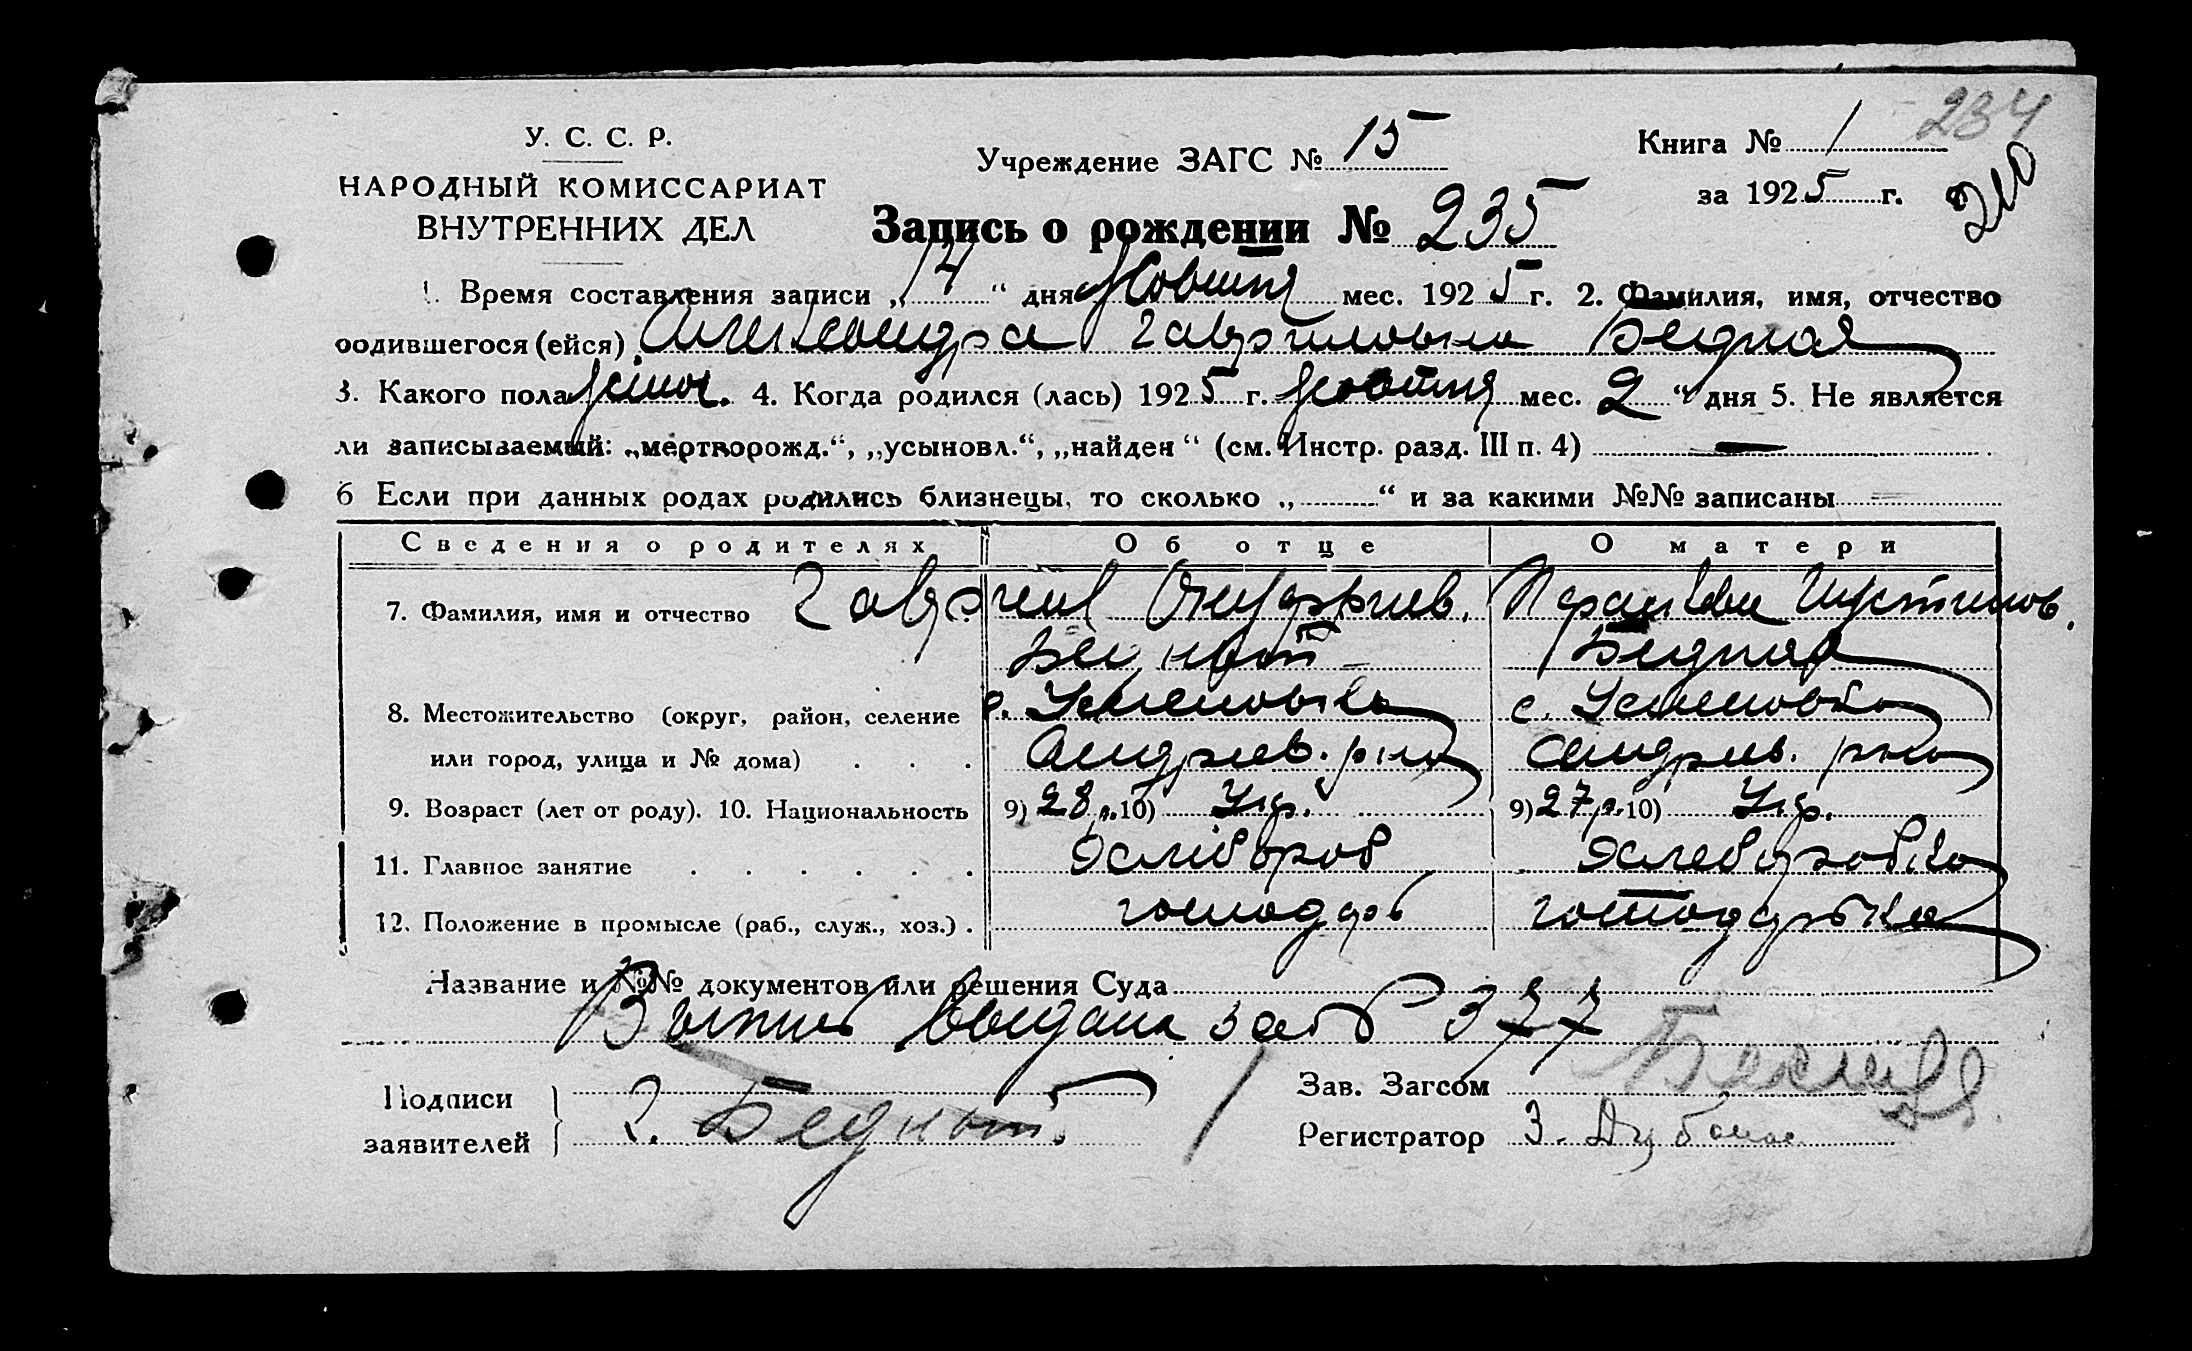 234
210
У. С. С. Р.
НАРОДНЫЙ КОМИССАРИАТ
ВНУТРЕННИХ ДЕЛ
Учреждение ЗАГС № 15
Книга № 1
за 1925 г.
Запись о рождении № 235
1. Время составления записи „14“ дня Жовтня мес. 1925 г. 2. Фамилия, имя, отчество
родившегося (ейся) Александра Гавриловна Бедная
3. Какого пола жіноч. 4. Когда родился (лась) 1925 г. жовтня мес. 2 “ дня 5. Не является
ли записываемый: „мертворожд.“, „усыновл.“, „найден“ (см. Инстр. разд. III п. 4) —
6 Если при данных родах родились близнецы, то сколько „ “ и за какими №№ записаны
Сведения о родителях Об отце О матери
7. Фамилия, имя и отчество Гавриил Онуфриев. Параскева Иустинов.
Бедный Бедная
8. Местожительство (округ, район, селение с. Успеновка с. Успеновка
или город, улица и № дома) . . . Андриев. р-на Андриев. р-на
9. Возраст (лет от роду). 10. Национальность 9) 28 р. 10) Укр. 9) 27 р. 10) Укр.
11. Главное занятие . . . . . . Хлібороб Хлеборобка
12. Положение в промысле (раб., служ., хоз.) . господарь господарька
Название и №№ документов или решения Суда
Выпись выдана за № 377
Подписи
заявителей
Г. Бедный
Зав. Загсом
Регистратор З.